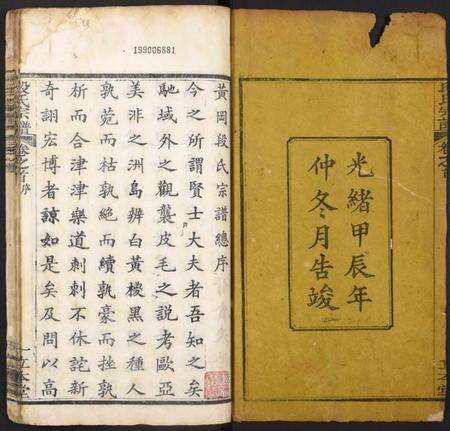 光緒甲辰年
仲冬月告竣
199006881
黃岡段氏宗譜總序
今之所謂賢士大夫者吾知之矣
馳域外之觀襲皮毛之說考歐亞
美非之洲島辨白黃椶黑之種人
孰莞而枯孰絕而續孰豪而挫孰
析而合津津樂道刺刺不休詫新
奇詡宏博者諒如是矣及問以高
段氏宗譜
卷之首
序
立本堂